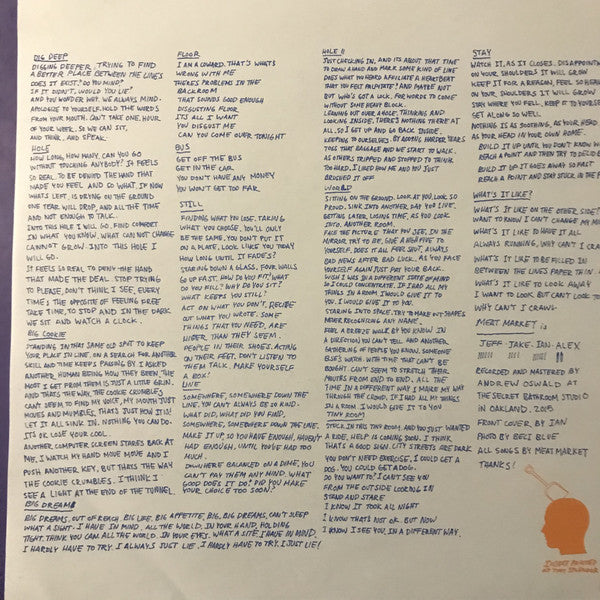 DIG DEEP
DIGGING DEEPER, TRYING TO FIND
A BETTER PLACE BETWEEN THE LINES
DOES IT EXIST? DO YOU MIND?
IF IT DIDN'T, WOULD YOU LIE?
AND YOU WONDER WHY, WE ALWAYS MIND.
APOLOGIZE TO YOURSELF, HOLD THE WORDS
FROM YOUR MOUTH. CAN'T TAKE ONE HOUR
OF YOUR WEEK, SO WE CAN SIT,
AND THINK, AND SPEAK.
HOLE
HOW LONG, HOW MANY, CAN YOU GO
WITHOUT TOUCHING ANYBODY? IT FEELS
SO REAL TO BE DENIED THE HAND THAT
MADE YOU FEEL AND GO WHAT IF NOW
WHATS LEFT, IS DRYING ON THE GROUND
ONE TEAR WILL DROP, AND ALL THE TIME
AND NOT ENOUGH TO TALK.
INTO THIS HOLE I WILL GO. FIND COMFORT
IN WHAT YOU KNEW, WHAT CAN NOT CHANGE
CANNOT GROW. INTO THIS HOLE I
WILL GO.
IT FEELS SO REAL TO DENY THE HAND
THAT MADE THE DEAL. STOP TRYING
TO PLEASE, DON'T THINK I SEE, EVERY
TIME THE OPPOSITE OF FEELING FREE
TAKE TIME, TO STOP AND IN THE DARK
WE SIT AND WATCH A CLOCK.
BIG COOKIE
STANDING IN THAT SAME OLD SPOT TO KEEP
YOUR PLACE IN LINE, ON A SEARCH FOR ANOTHER
SKILL AND TIME KEEPS PASSING BY. I ASKED
ANOTHER, HUMAN BEING HOW THEY BEEN, THE
MOST I GET FROM THEM IS JUST A LITTLE GRIN.
AND THAT'S THE WAY, THE COOKIE CRUMBLES
CAN'T SEEM TO FIND MY VOICE, MY MOUTH JUST
MOVES AND MUMBLES, THAT'S JUST HOW IT IS!
LET IT ALL SINK IN. NOTHING YOU CAN DO.
ITS OK, LOSE YOUR COOL.
ANOTHER COMPUTER SCREEN STARES BACK AT
ME, I WATCH MY HAND MOVE MOVE AND I
PUSH ANOTHER KEY, BUT THATS THE WAY
THE COOKIE CRUMBLES, I THINK I
SEE A LIGHT AT THE END OF THE TUNNEL.
BIG DREAMS
BIG DREAMS, OUT OF REACH. BIG LIFE, BIG APPETITE, BIG, BIG DREAMS, CAN'T SLEEP
WHAT A SIGHT. I HAVE IN MIND, ALL THE WORLD, IN YOUR HAND, HOLDING
TIGHT. THINK YOU CAN, ALL THE WORLD, IN YOUR EYES. WHAT A SITE, I HAVE IN MIND.
I HARDLY HAVE TO TRY. I ALWAYS JUST LIE, I HARDLY HAVE TO TRY, I JUST LIE!
FLOOR
I AM A COWARD. THAT'S WHATS
WRONG WITH ME
THERE'S PROBLEMS IN THE
BACKROOM
THAT SOUNDS GOOD ENOUGH
DISGUSTING FLOOR
ITS ALL I WANT
YOU DISGUST ME
CAN YOU COME OVER TONIGHT
BUS
GET OFF THE BUS
GET IN THE CAR.
YOU DON'T HAVE ANY MONEY
YOU WON'T GET TOO FAR.
STILL
FINDING WHAT YOU LOSE, TAKING
WHAT YOU CHOOSE. YOU'LL ONLY
BE THE SAME, YOU DON'T PUT IT
ON A PLATE, LOOK LIKE YOU TODAY
HOW LONG UNTIL IT FADES?
STARING DOWN A GLASS, FOUR WALLS
GO UP FAST, HOW DO YOU FIT? WHAT
DO YOU FILL? WHY DO YOU SIT?
WHAT KEEPS YOU STILL?
ACT ON WHAT YOU DON'T, DECIDE
OUT WHAT YOU WROTE. SOME
THINGS THAT YOU NEED, ARE
HIDER THAN THEY SEEM.
PEOPLE IN THEIR SHOES, ACTING
ON THEIR FEET. DON'T LISTEN TO
THEM TALK. MAKE YOURSELF
A BOX!
LINE
SOMEWHERE, SOMEWHERE DOWN THE
LINE. YOU CAN'T ALWAYS BE SO KIND.
WHAT DID, WHAT DID YOU FIND,
SOMEWHERE, SOMEWHERE DOWN THE LINE.
MAKE IT UP, SO YOU HAVE ENOUGH, HAVEN'T
HAD ENOUGH, UNTIL YOU'VE HAD TOO
MUCH.
DOWN HERE BALANCED ON A DIME, YOU
CAN'T PAY THEM ANY MIND. WHAT
GOOD DOES IT DO? DID YOU MAKE
YOUR CHOICE TOO SOON?
HOLE II
JUST CHECKING IN, AND ITS ABOUT THAT TIME
TO DRAW A HAND AND MARK SOME KIND OF LINE
DOES WHAT YOU HEARD AFFILIATE A HEARTBEAT
THAT YOU FELT PALPITATE? AND MAYBE NOT
BUT WHO'S GOT A LUCK, FOR WORDS TO COME
WITHOUT SOME HEAVY BLOCK.
LEANING OUT FOR A NOSE, THINKING AND
LOOKING INSIDE, THERE'S NOTHING THERE AT
ALL, SO I GET UP AND GO BACK INSIDE.
KEEPING TO OURSELVES
TOOK THAT BAGGAGE AND WE START TO WALK.
AS OTHERS TRIPPED AND STOPPED TO THINK.
TOO HARD, I LIKED HOW ME AND YOU JUST
BRUSHED IT OFF
WOOLD
SITTING ON THE GROUND, LOOK AT YOU, LOOK SO
PROUD. SINK INTO ANOTHER, DAY YOU LIVE.
GETTING LATER, LOSING TIME, AS YOU LOOK
INTO ANOTHER ROOM.
FACE THE PICTURE THAT YOU SEE, IN THE
MIRROR TRY TO BE, GIVE A HIGH FIVE TO
YOURSELF, DOES IT ALL FEEL SHUT, ALWAYS
BAD NEWS AFTER BAD LUCK, AS YOU FACE
YOURSELF AGAIN JUST PAT YOUR BACK.
WISH I WAS IN A DIFFERENT STATE OF MIND
SO I COULD CONCENTRATE. IF I HAD ALL MY
THINGS IN A ROOM I WOULD GIVE IT TO
YOU. I WOULD GIVE IT TO YOU.
STARING INTO SPACE, TRY TO MAKE OUT SHAPES
NEVER RECOGNIZING ANY NAMES.
FEEL A BREEZE WOULD BE YOU KNOW IN
A DIRECTION YOU CAN'T TELL AND ANOTHER
GATHERING OF PEOPLE YOU KNOW. SOMEONE
ELSE'S WATCH, WITH TIME THAT CAN'T BE
BOUGHT CAN'T SEEM TO STRETCH THEIR
MOUTHS FROM END TO END. ALL THE
TIME IN A DIFFERENT WAY I MAKE MY WAY
THROUGH THE CROWD. IF I HAD ALL MY THINGS
IN A ROOM. I WOULD GIVE IT TO YOU
TINY ROOM
STUCK IN THIS TINY ROOM, AND YOU JUST WANTED
A RIDE, HELP IS COMING SOON, I THINK
THAT'S A GOOD SIGN. CITY STREETS ARE DARK
YOU DON'T NEED EXERCISE, I COULD GET A
DOG. YOU COULD GET A DOG.
DO YOU WANT TO? I CAN'T SEE YOU
FROM THE OUTSIDE LOOKING IN
STAND AND STARE
I KNOW IT TOOK ALL NIGHT
I KNOW THATS NOT OK. BUT NOW
I KNOW I SEE YOU, IN A DIFFERENT WAY.
STAY
WATCH IT, AS IT CLOSES. DISAPPOINTM
ON YOUR SHOULDERS IT WILL GROW
KEEP IT FOR A REASON, FEEL SO HEAV
ON YOUR, SHOULDERS IT WILL GROW
STAY WHERE YOU FELL, KEEP IT TO YOURSE
GET ALONG SO WELL.
NOTHING IS AS NOTHING, AS YOUR HEAD
AS YOUR HEAD IN YOUR OWN HOME.
BUILD IT UP UNTIL YOU DON'T KNOW W
REACH A POINT AND THEN TRY TO DECID
BUILD IT UP IT GOES AWAY SO FAST
REACH A POINT AND STAY STUCK IN THE P
WHAT'S IT LIKE?
WHAT'S IT LIKE ON THE OTHER SIDE?
WANT TO KNOW I CAN'T CHANGE MY MI
WHAT'S IT LIKE TO HAVE IT ALL
ALWAYS RUNNING, WHY CAN'T I CRA
WHAT'S IT LIKE TO BE FILLED IN
BETWEEN THE LINES PAPER THIN
WHAT'S IT LIKE TO LOOK AWAY
I WANT TO LOOK BUT CAN'T LOOK TO
WHY CAN'T I CRAWL
MEAT MARKET is
JEFF - JAKE - IAN - ALEX
RECORDED AND MASTERED BY
ANDREW OSWALD AT
THE SECRET BATHROOM STUDIO
IN OAKLAND. 2015
FRONT COVER BY IAN
PHOTO BY BECI BLUE
ALL SONGS BY MEAT MARKET
THANKS!
INSERT PRINTED
AT TINY SPLENDOR